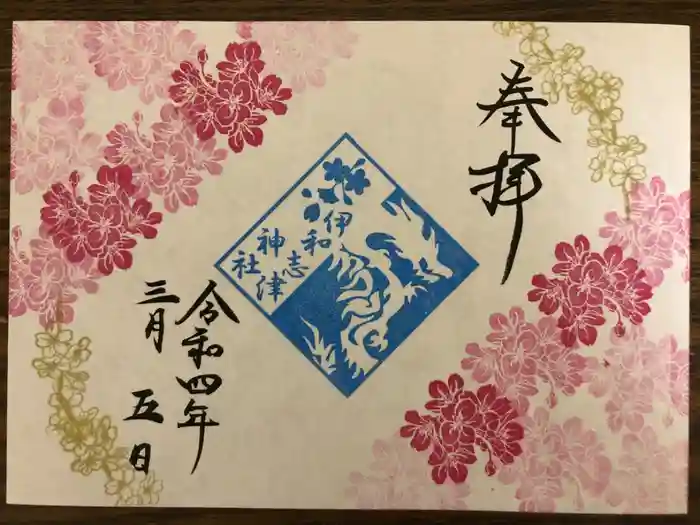 奉拝
伊和
志津
神社
令和四年
三月五日